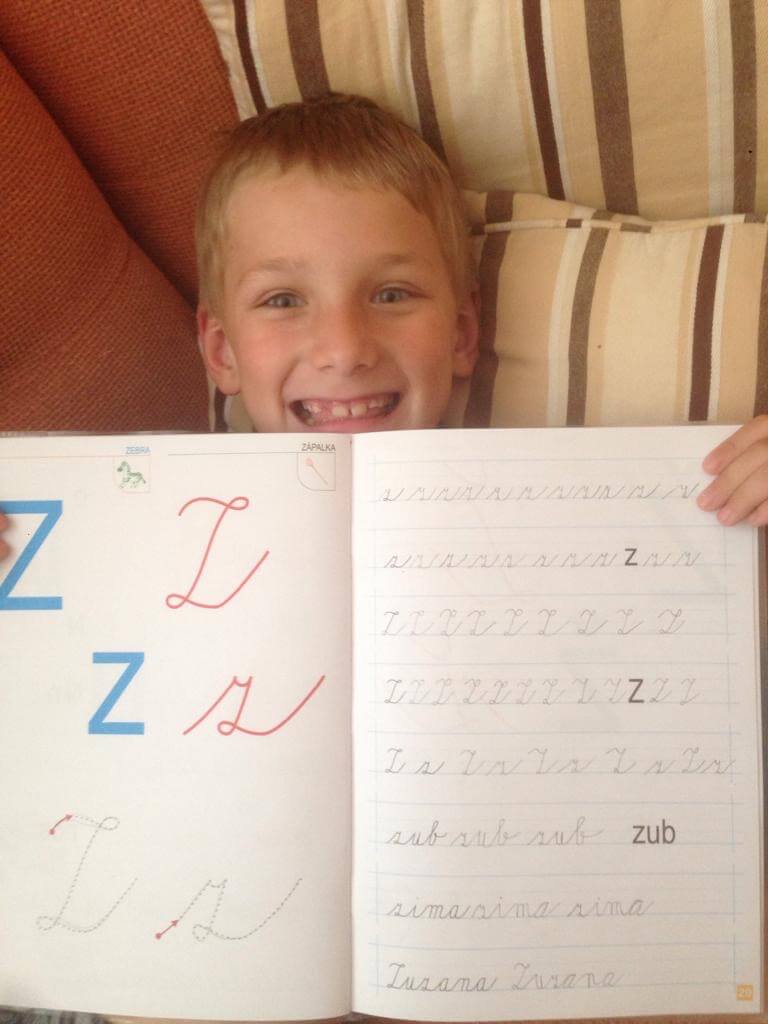 ZEBRA ZÁPALKA
Z Z
z z
Z z
z z z z z z z z z z z z
z z z z z z z z z z z
Z Z Z Z Z Z Z Z Z
Z Z Z Z Z Z Z Z Z Z Z Z
Z z Z z Z z Z z Z z
zub zub zub zub
zima zima zima
Zuzana Zuzana
29